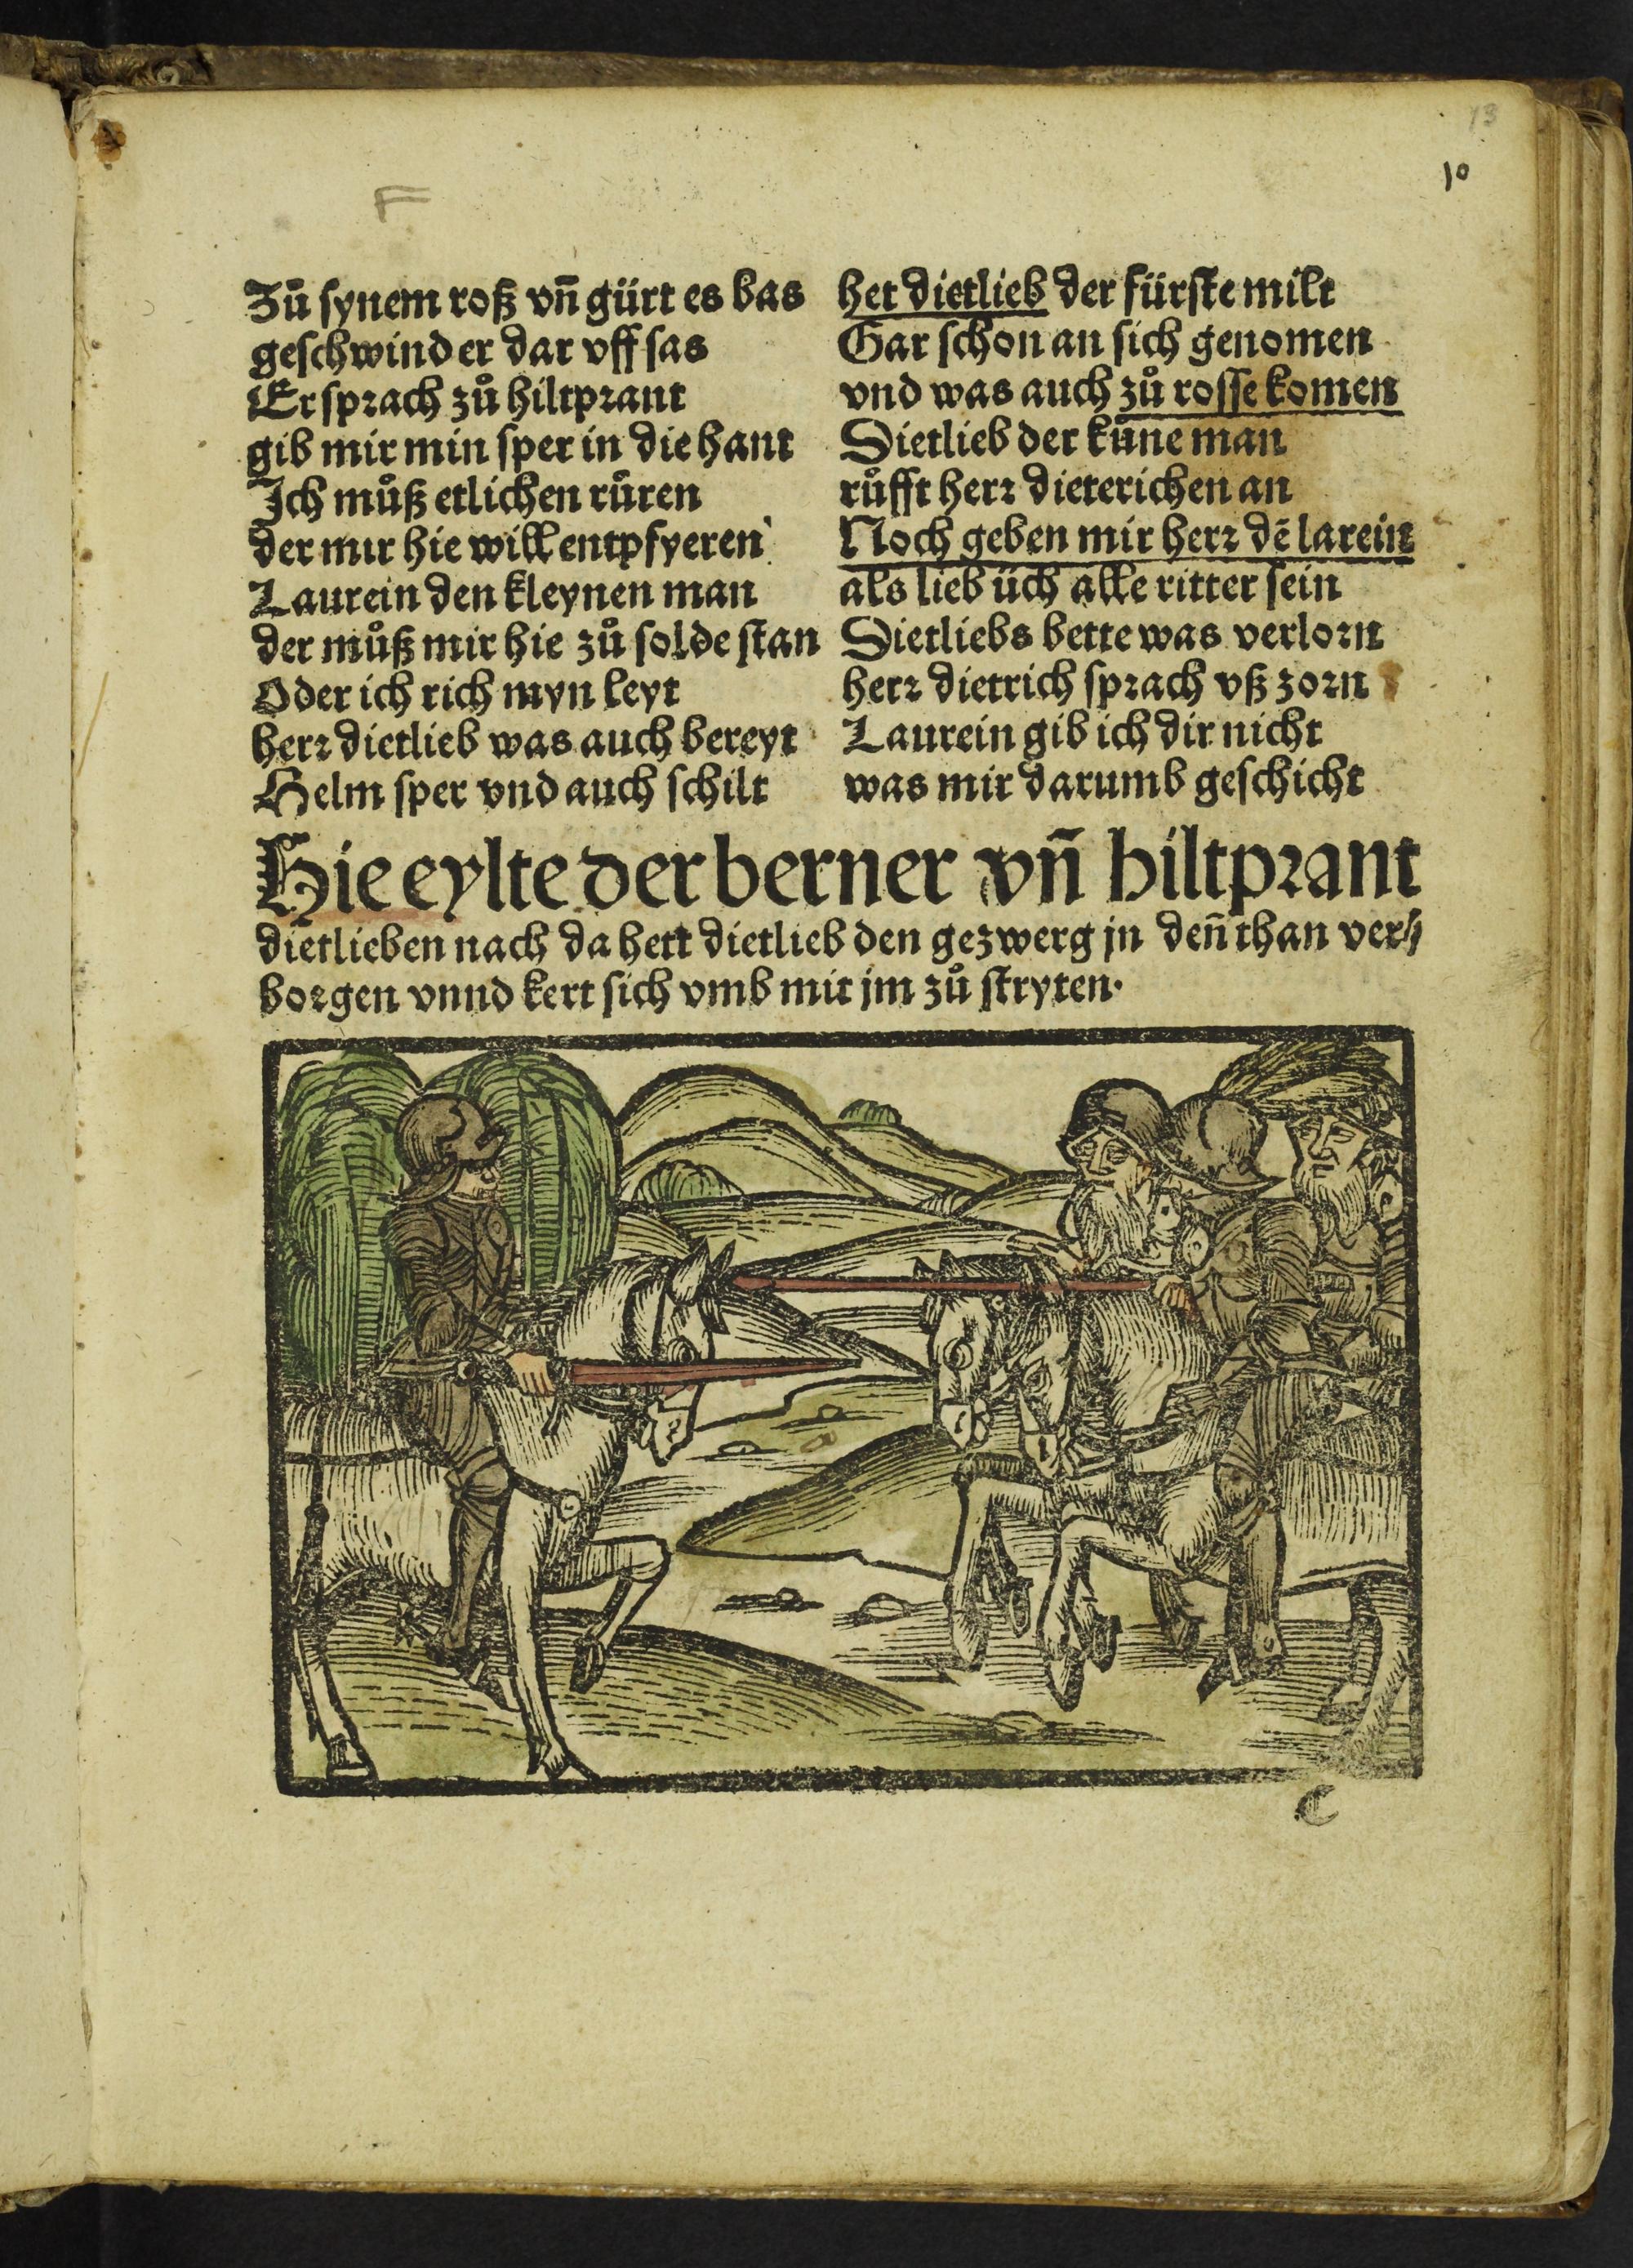 13
10
F
Zů synem roß vñ gürt es bas
geschwind er dar vff sas
Er sprach zů hiltprant
gib mir min sper in die hant
Ich můß etlichen růren
der mir hie will entpfyeren
Laurein den kleynen man
der můß mir hie zů solde stan
Oder ich rich myn leyt
herr dietlieb was auch bereyt
Helm sper vnd auch schilt
het dietlieb der fürste milt
Gar schon an sich genomen
vnd was auch zů rosse komen
Dietlieb der kůne man
růfft herr dieterichen an
Noch geben mir herr dē larein
als lieb üch alle ritter sein
Dietliebs bette was verlorn
herr dietrich sprach vß zorn
Laurein gib ich dir nicht
was mir darumb geschicht
Hie eylte der berner vñ hiltprant
dietlieben nach da hett dietlieb den gezwerg jn deñ than ver⸗
borgen vnnd kert sich vmb mit jm zů stryten.
C